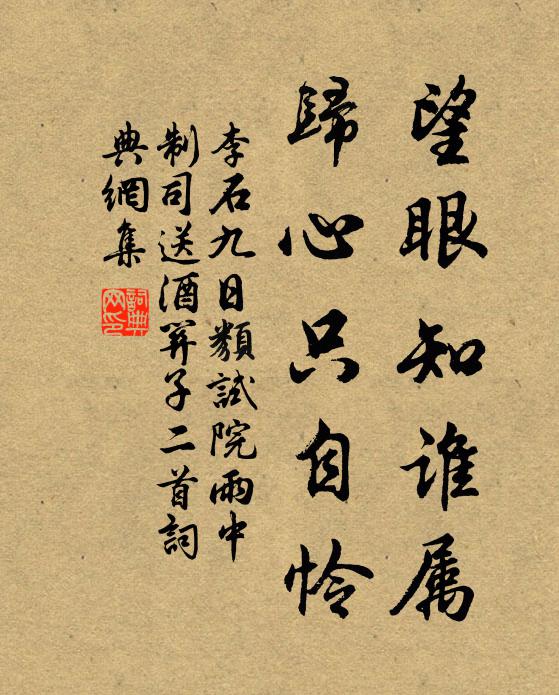 望眼知誰属
歸心只自怜
李石九日類試院雨中
制司送酒羿子二首詞
典網集
詞典
网印